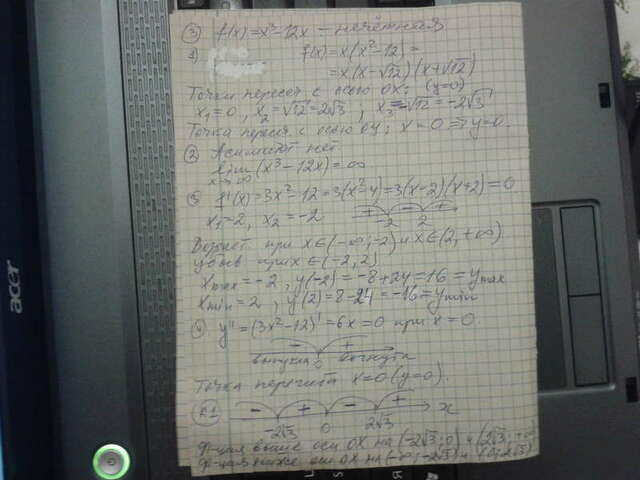 ③ f(x)=x³-12x - нечётная
1) f(x)=x(x²-12)=
=x(x-√12)(x+√12)
Точки пересеч с осью OX: (y=0)
x₁=0, x₂=√12=2√3; x₃=-√12=-2√3
Точка пересеч с осью OY: x=0 ⇒ y=0.
② Асимптот нет.
lim (x³-12x)=∞
x→∞
③ f'(x)=3x²-12=3(x²-4)=3(x-2)(x+2)=0
x₁=2, x₂=-2
+ - +
-2 2
Возраст при x∈(-∞,-2) и x∈(2,+∞)
убыв при x∈(-2,2)
xmax=-2, y(-2)=-8+24=16=ymax
xmin=2, y(2)=8-24=-16=ymin
④ y''=(3x²-12)'=6x=0 при x=0
- +
выпукла 0 вогнута
Точка перегиба x=0 (y=0).
- + - + x
-2√3 0 2√3
ф-ция выше оси OX на (-2√3;0) и (2√3;+∞)
ф-ция ниже оси OX на (-∞;-2√3) и (0;2√3)
acer